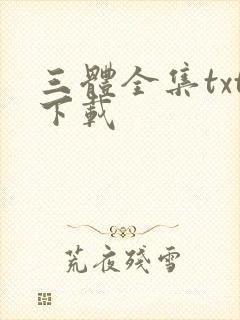 三體全集txt
下載
荒夜殘雪